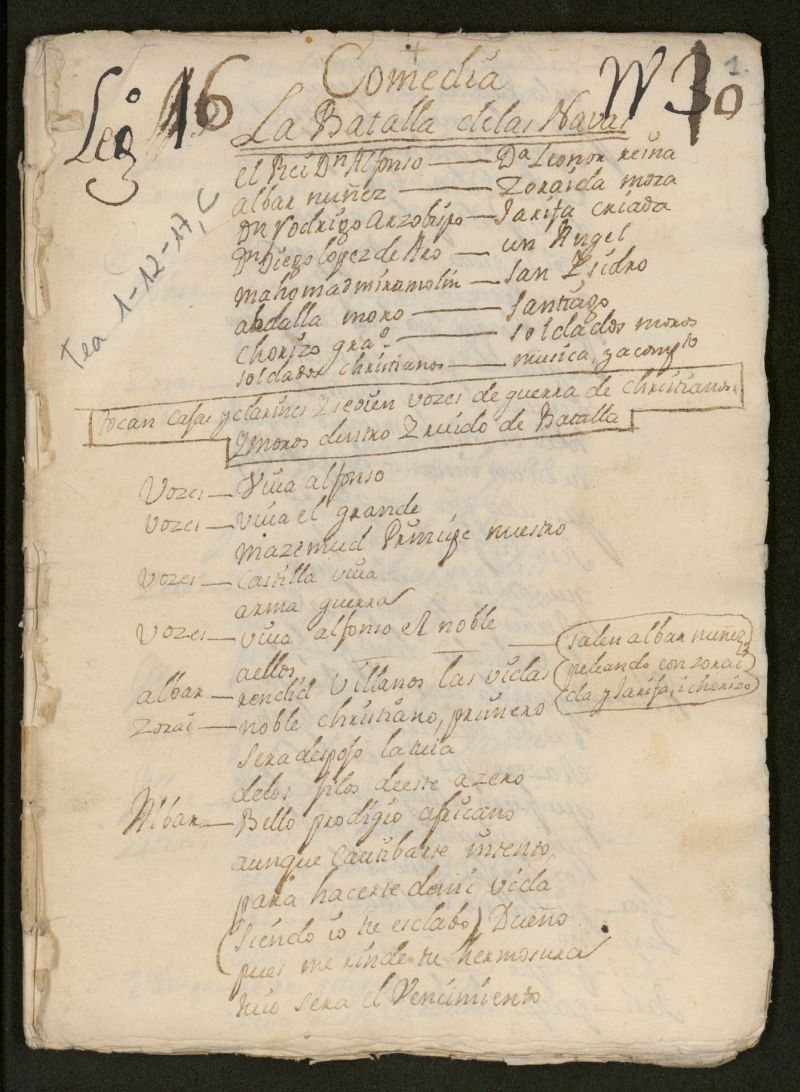 Comedia
Leg.º 16
Nº 30
1
La Batalla delas Navas
Tea 1-12-17, C
el Rei Dn Alfonso — Da Leonor reina
albar nuñez — Zoraida mora
Dn Rodrigo Arzobispo — Jarifa criada
Dn Diego lopez de Aro — un Angel
mahomad miramolin — San Isidro
abdalla moro — Santiago
chorizo graº — soldados moros
soldados christianos — musica, y acompto
tocan cajas y clarines I se oien vozes de guerra de christianos
I moros dentro I ruido de Batalla
Vozes — Viva alfonso
vozes — viva el grande
mazemud Principe nuestro
vozes — Castilla viva
arma guerra
vozes — viva alfonso el noble
aellos
salen albar nuñez
peleando con zorai
da y Jarifa, i chorizo
albar — rendid villanos las vidas
Zorai — noble christiano, primero
sera despojo la tuia
delos filos deeste azero
Albar — Bello prodigio africano
aunque cautibarte intento,
para hacerte demi vida
(siendo io tu esclabo) Dueño
pues me rinde tu hermosura
tuio sera el Vencimiento